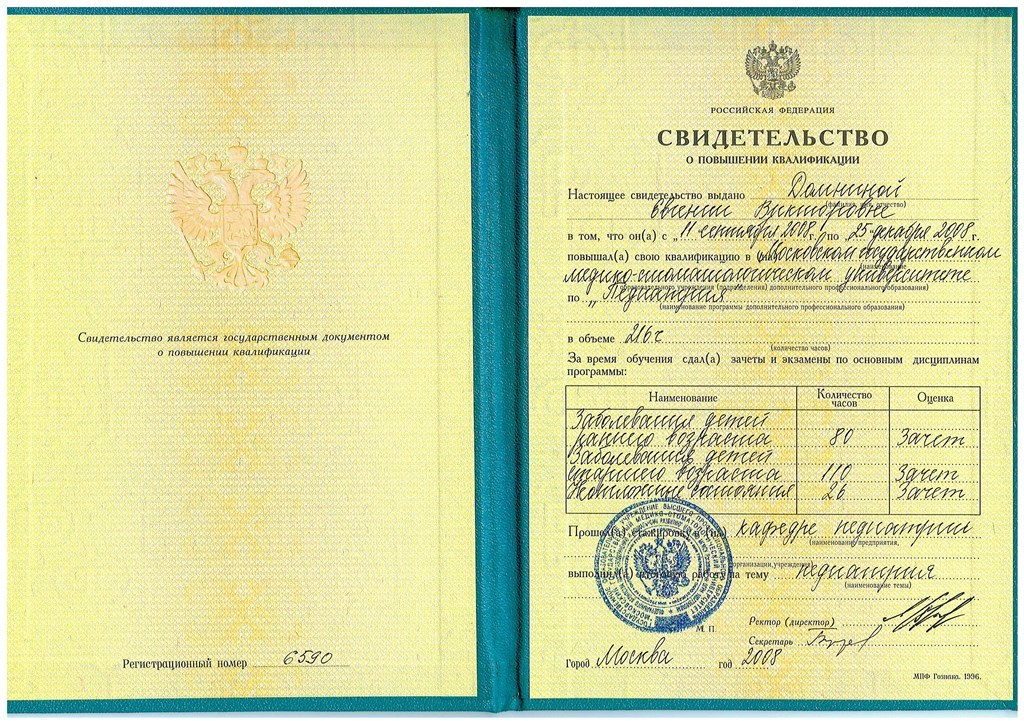 Свидетельство является государственным документом
о повышении квалификации
Регистрационный номер 6590
РОССИЙСКАЯ ФЕДЕРАЦИЯ
СВИДЕТЕЛЬСТВО
О ПОВЫШЕНИИ КВАЛИФИКАЦИИ
Настоящее свидетельство выдано Домниной
(фамилия, имя, отчество)
Евгении Викторовне
в том, что он(а) с „ 11 сентября 2008 г. по „ 25 декабря 2008 г.
повышал(а) свою квалификацию в (на) Московском государственном
(наименование
медико-стоматологическом университете
образовательного учреждения (подразделения) дополнительного профессионального образования)
по „ Педиатрия "
(наименование программы дополнительного профессионального образования)
в объеме 216 ч
(количество часов)
За время обучения сдал(а) зачеты и экзамены по основным дисциплинам
программы:
Наименование Количество часов Оценка
Заболевания детей
раннего возраста 80 Зачет
Заболевания детей
старшего возраста 110 Зачет
Неотложные состояния 26 Зачет
Прошел(а) стажировку в (на) кафедре педиатрии
(наименование предприятия,
организации, учреждения)
выполнил(а) итоговую работу на тему педиатрия
(наименование темы)
М. П.
Ректор (директор)
Секретарь
Город Москва год 2008
МПФ Гознака. 1996.